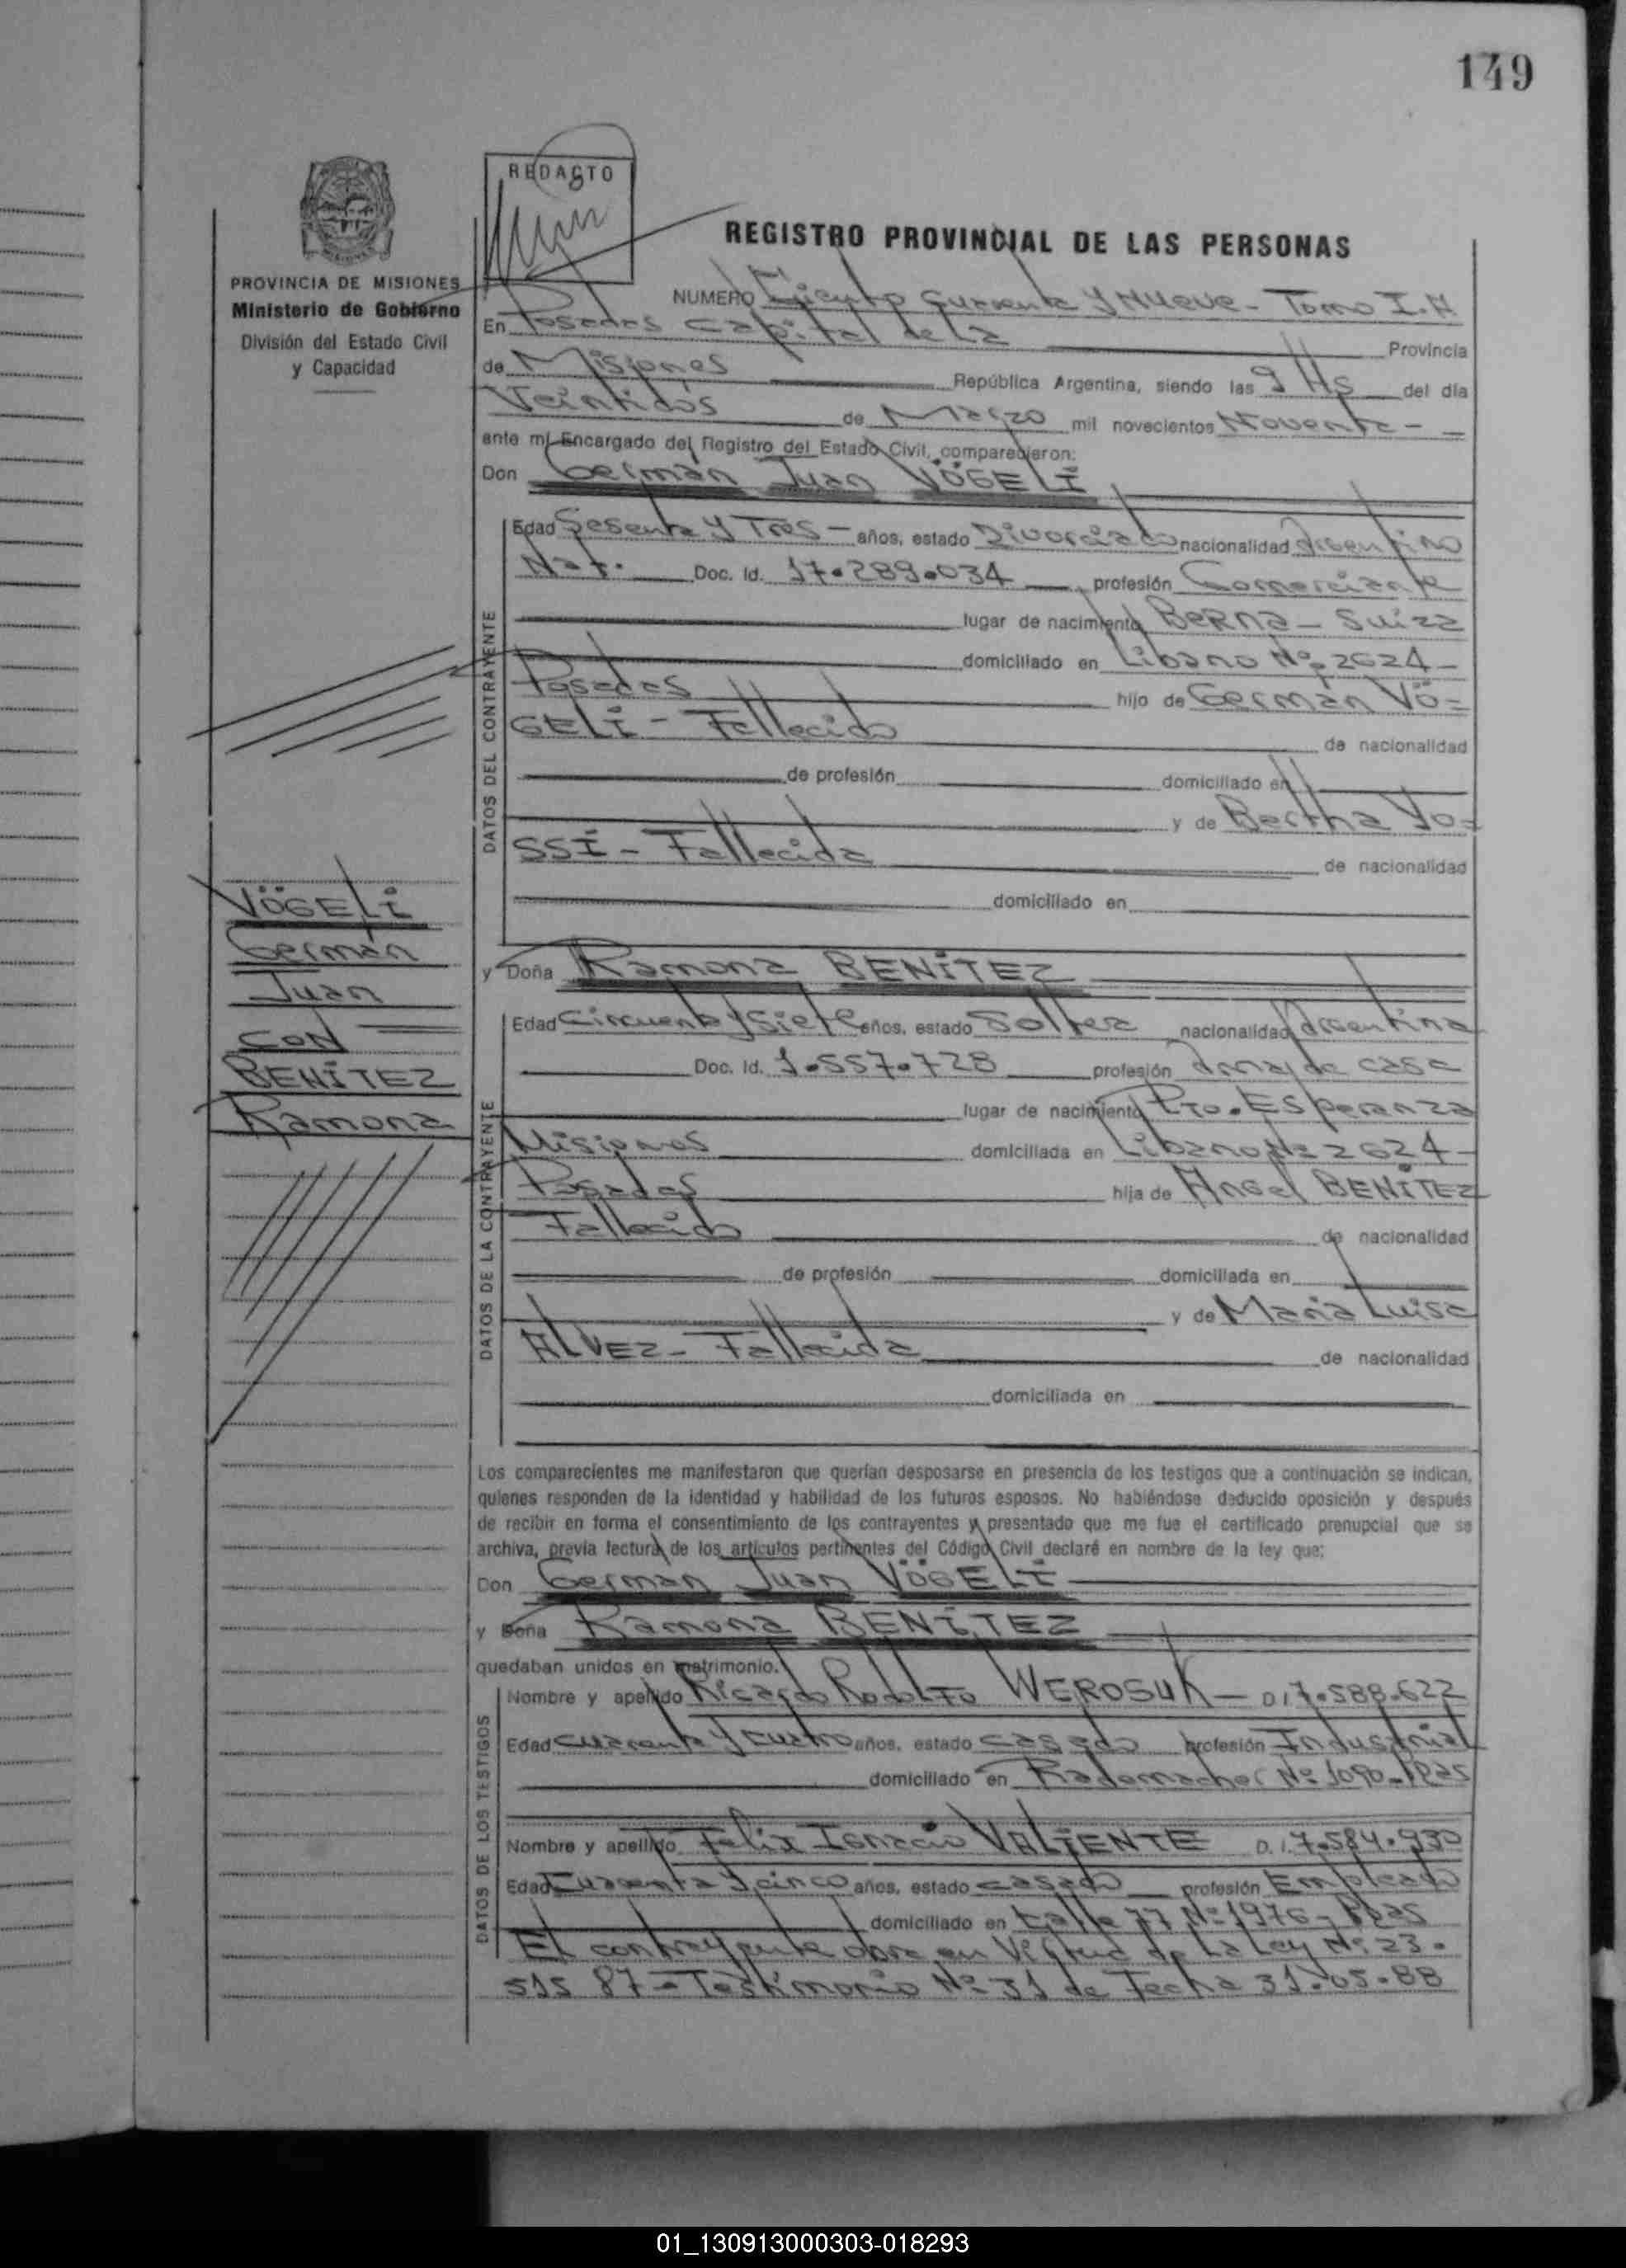 149
REDACTO
REGISTRO PROVINCIAL DE LAS PERSONAS
PROVINCIA DE MISIONES
Ministerio de Gobierno
División del Estado Civil
y Capacidad
NUMERO Ciento Cuarenta y Nueve - Tomo I. A
En Posadas Capital de La Provincia
de Misiones República Argentina, siendo las 9 Hs del día
Veintidós de Marzo mil novecientos Noventa - -
ante mí Encargado del Registro del Estado Civil, comparecieron:
Don Germán Juan VÖGELI
DATOS DEL CONTRAYENTE
Edad Sesenta y Tres - años, estado Divorciado nacionalidad Argentino
Nat. Doc. Id. 17.289.034 profesión Comerciante
lugar de nacimiento Berna - Suiza
domiciliado en Libano Nº 2624 -
Posadas hijo de Germán VÖ=
GELI - Fallecido de nacionalidad
de profesión domiciliado en
y de Bertha Yo=
SSI - Fallecida de nacionalidad
domiciliado en
VÖGELI
Germán
Juan
CON
BENITEZ
Ramona
y Doña Ramona BENITEZ
DATOS DE LA CONTRAYENTE
Edad Cincuenta y Siete años, estado Soltera nacionalidad Argentina
Doc. Id. 1.557.728 profesión ama de casa
lugar de nacimiento Pto. Esperanza
Misiones domiciliada en Libano Nº 2624 -
Posadas hija de Angel BENITEZ
Fallecido de nacionalidad
de profesión domiciliada en
y de Maria Luisa
ALVEZ - Fallecida de nacionalidad
domiciliada en
Los comparecientes me manifestaron que querían desposarse en presencia de los testigos que a continuación se indican,
quienes responden de la identidad y habilidad de los futuros esposos. No habiéndose deducido oposición y después
de recibir en forma el consentimiento de los contrayentes y presentado que me fue el certificado prenupcial que se
archiva, previa lectura de los artículos pertinentes del Código Civil declaré en nombre de la ley que:
Don German Juan VÖGELI
y Doña Ramona BENITEZ
quedaban unidos en matrimonio.
DATOS DE LOS TESTIGOS
Nombre y apellido Ricardo Rodolfo WEROSUK - D.I. 7.588.622
Edad Cuarenta y Cuatro años, estado casado profesión Industrial
domiciliado en Rademacher Nº 1090 - Pdas
Nombre y apellido Felix Ignacio VALIENTE D.I. 7.584.930
Edad Cuarenta y cinco años, estado casado profesión Empleado
domiciliado en Calle 77 Nº 1976 - Pdas
El contrayente obra en Virtud de La Ley Nº 23.
515 87 - Testimonio Nº 31 de Fecha 31.05.88
01_130913000303-018293